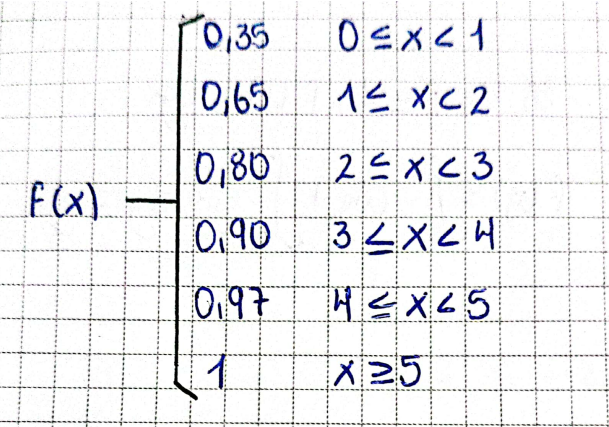 0,35 0 ≤ x < 1
0,65 1 ≤ x < 2
0,80 2 ≤ x < 3
F(x)
0,90 3 ≤ x < 4
0,97 4 ≤ x < 5
1 x ≥ 5